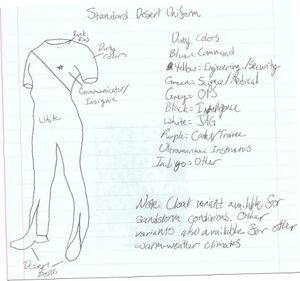 Standard Desert Uniform
Rank
Duty
colors
Duty colors
Blue = Command
Yellow = Engineering/Security
Green = Science/Medical
Grey = OPS
Black = Intelligence
White = JAG
Purple = Cadet/Trainee
Ultramarine: Instructors
Indigo = Other
Communicator/
Insignia
White
Note: Cloak variant available for
sandstorm conditions. Other
variants also available for other
warm-weather climates
Desert
Boots